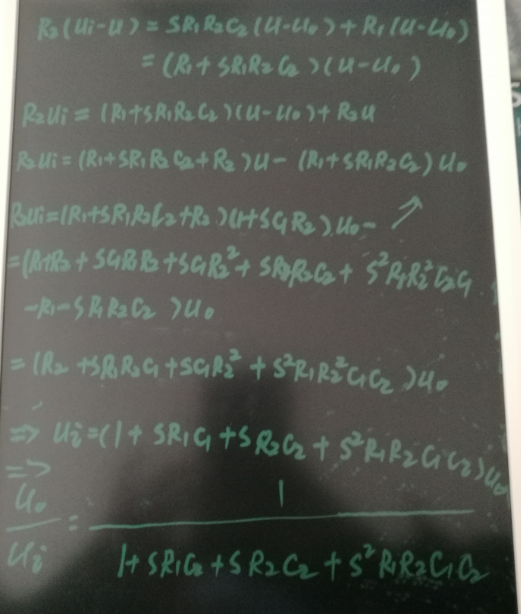 R2(Ui-U) = SR1R2C2(U-U0)+R1(U-U0)
= (R1+SR1R2C2)(U-U0)
R2Ui = (R1+SR1R2C2)(U-U0)+R2U
R2Ui=(R1+SR1R2C2+R2)U-(R1+SR1R2C2)U0
R2Ui=(R1+SR1R2C2+R2)(1+SC1R2)U0-
=(R1+R2+SC1R1R2+SC1R2²+SR1R2C2+S²R1R2²C2C1
-R1-SR1R2C2)U0
=(R2+SR1R2C1+SC1R2²+S²R1R2²C1C2)U0
⇒ Ui=(1+SR1C1+SR2C2+S²R1R2C1C2)U0
⇒
U0/Ui = 1/(1+SR1C2+SR2C2+S²R1R2C1C2)